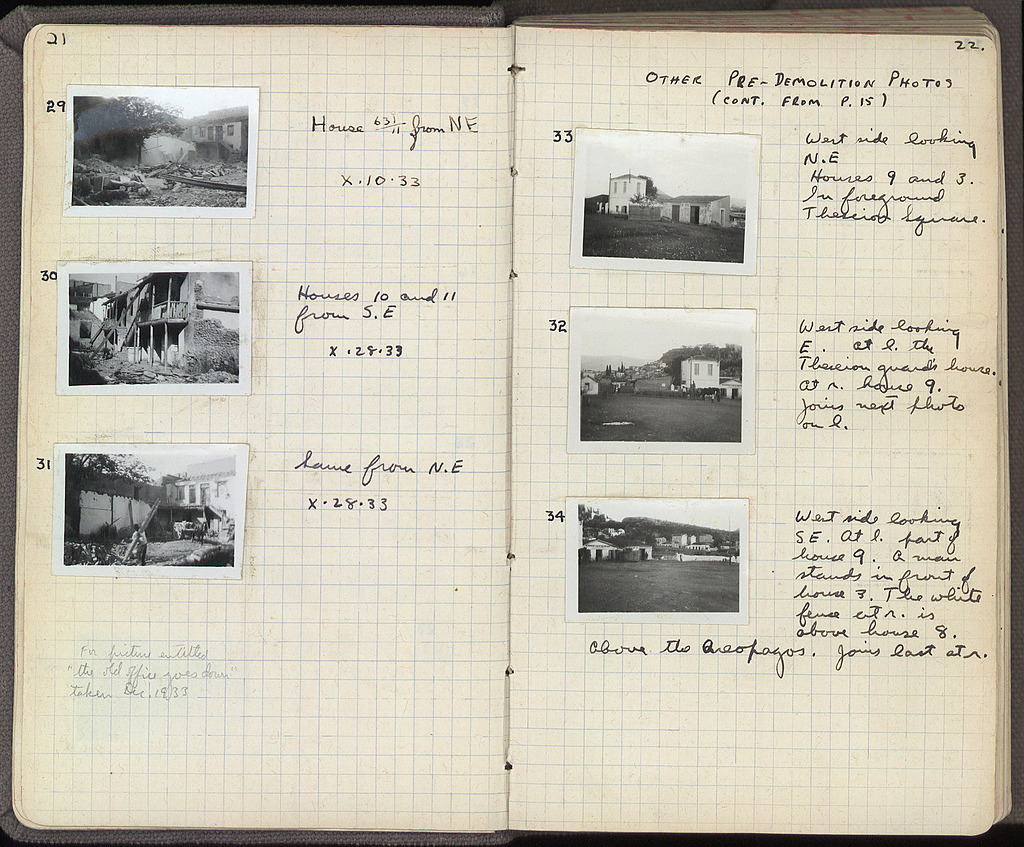 21
29
House 631/11 from NE
X.10.33
30
Houses 10 and 11
from S.E
X.28.33
31
Same from N.E
X.28.33
For picture entitled
"the old office goes down"
taken Dec. 1933
22.
OTHER PRE-DEMOLITION PHOTOS
(CONT. FROM P.15)
33
West side looking
N.E
Houses 9 and 3.
In foreground
Theseion Square.
32
West side looking
E. At l. the
Theseion guard's house.
At r. house 9.
Joins next photo
on l.
34
West side looking
SE. At l. part of
house 9. A man
stands in front of
house 3. The white
fence at r. is
above house 8.
above the Areopagos. Joins last at r.